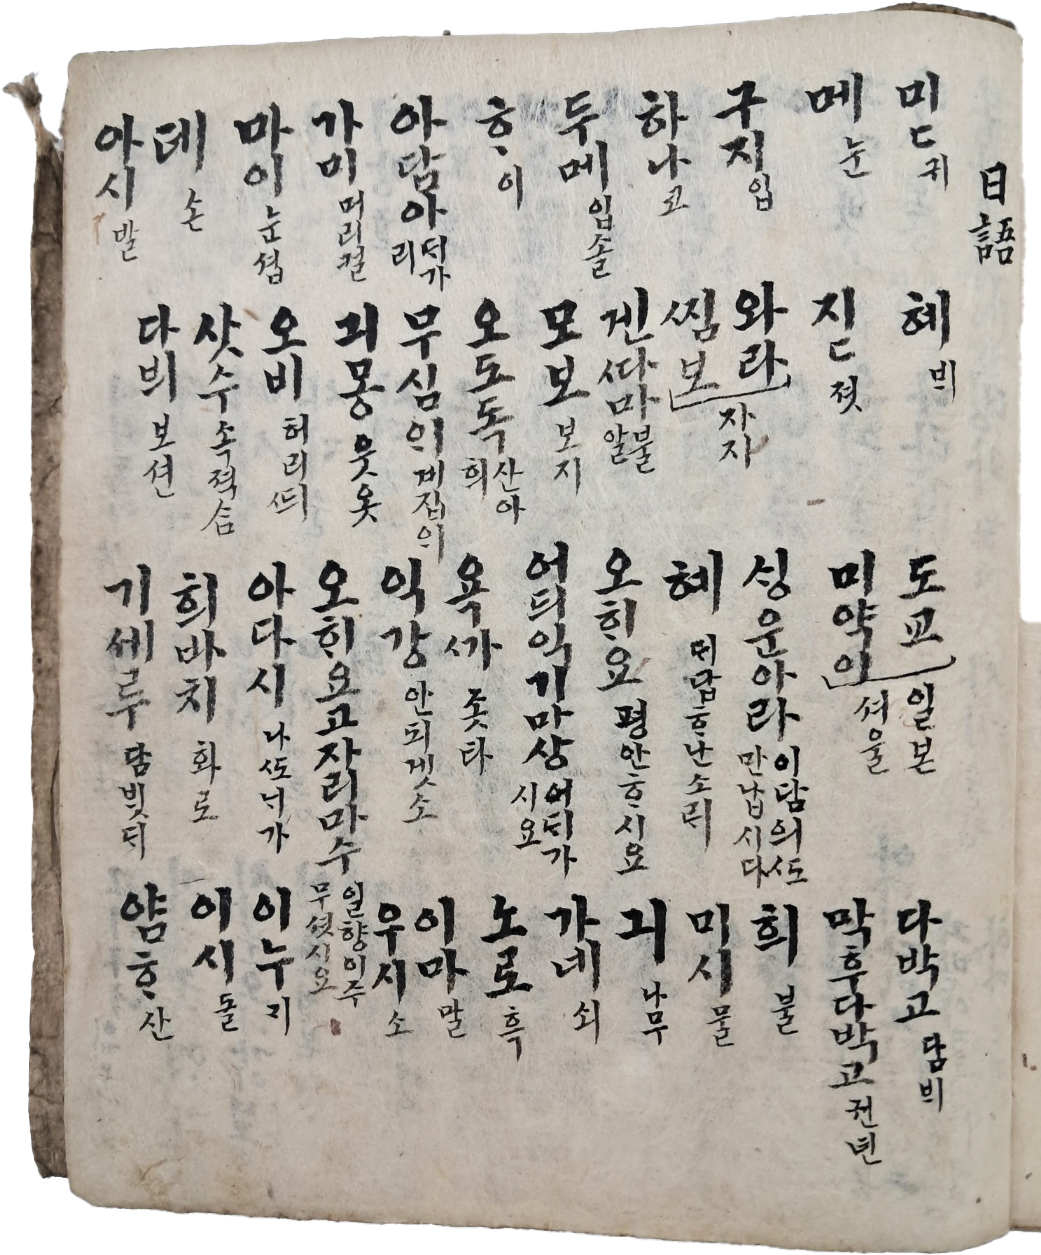 日語
미ᄃ 귀
메 눈
구지 입
하나 코
두메 입솔
ᄒᆞ 이
아담아 ᄃᆡ가리
가미 머리결
마이 눈섭
데 손
아시 발
혜 ᄇᆡ
지ᄃ 젓
와라 ᄶᅵᆷ보 자지
겐ᄯᅡ마 불알
모보 보지
오도독 산아희
무심의 계집의
긔몽 웃옷
오비 허리ᄯᅴ
삿수 속적삼
다븨 보션
도교 일본
미약이 셔울
싱운아라 이담의 ᄯᅩ 만납시다
혜 ᄃᆡ답ᄒᆞ난 소ᄅᆡ
오히요 평안ᄒᆞ시요
어듸익기마상 어ᄃᆡ가시요
욕ᄭᅡ 좃타
익강 안되겟소
오히요고자리마수 일향이주무셧시요
아다시 나ᄯᅩ넉가
희바치 화로
기세루 담ᄇᆡᆺᄃᆡ
다박고 담ᄇᆡ
막후다박고 권년
희 불
미시 물
긔 나무
가네 쇠
노로 흑
이마 말
우시 소
이누 ᄀᆡ
이시 돌
얌ᄒᆞ 산